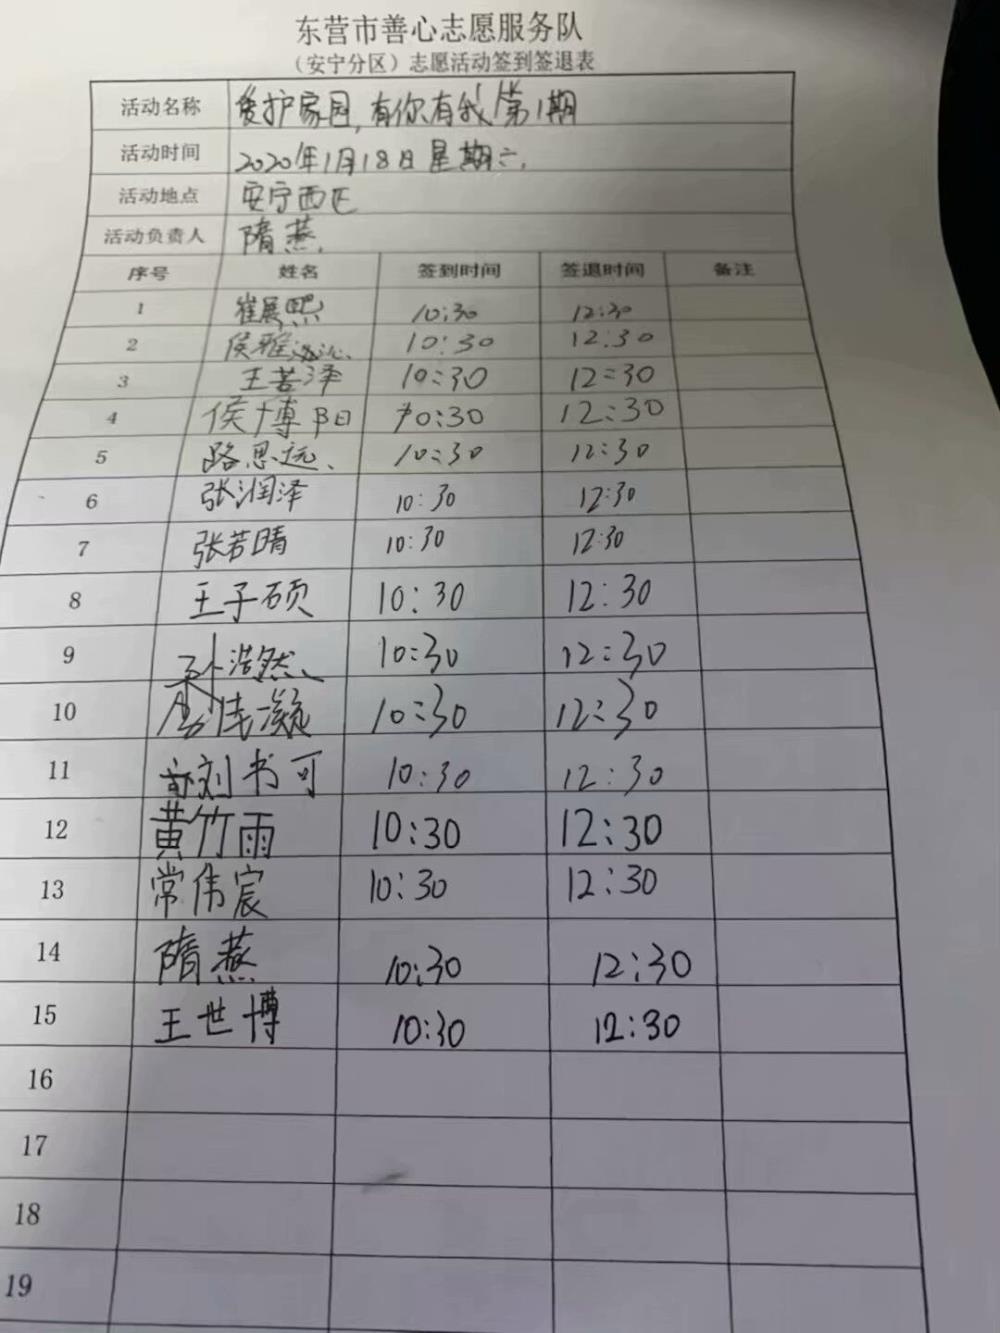 东营市善心志愿服务队
（安宁分区）志愿活动签到签退表
活动名称 爱护家园，有你有我！第1期
活动时间 2020年1月18日星期六.
活动地点 安宁西区
活动负责人 隋燕.
序号 姓名 签到时间 签退时间 备注
1 崔展熙 10:30 12:30
2 侯雅 10:30 12:30
3 王若泽 10:30 12:30
4 侯博阳 10:30 12:30
5 路思远、 10:30 12:30
6 张润泽 10:30 12:30
7 张若晴 10:30 12:30
8 王子硕 10:30 12:30
9 孙浩然 10:30 12:30
10 佳凝 10:30 12:30
11 刘书可 10:30 12:30
12 黄竹雨 10:30 12:30
13 常伟宸 10:30 12:30
14 隋燕 10:30 12:30
15 王世博 10:30 12:30
16
17
18
19